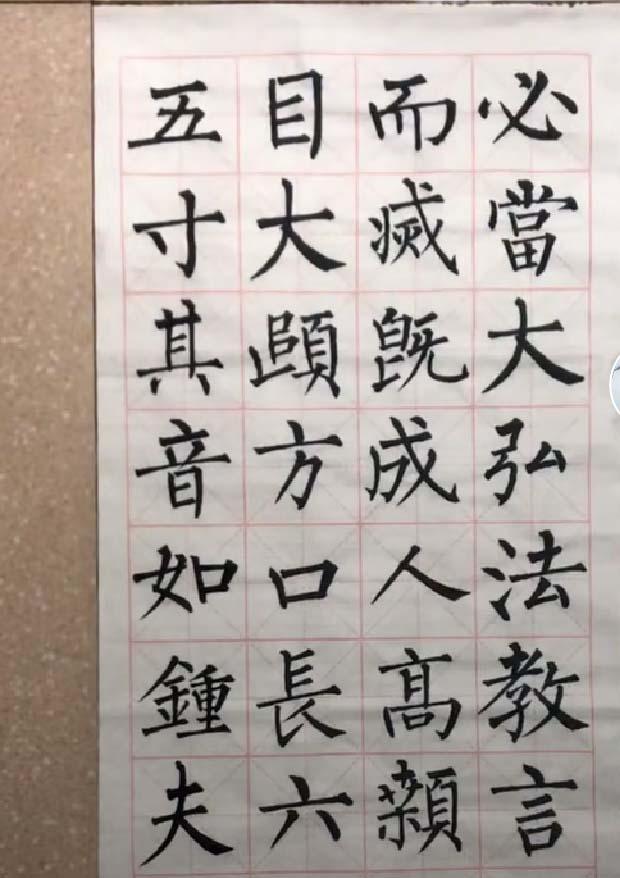 必當大弘法教言
而滅既成人髙顙
目大頤方口長六
五寸其音如鍾夫